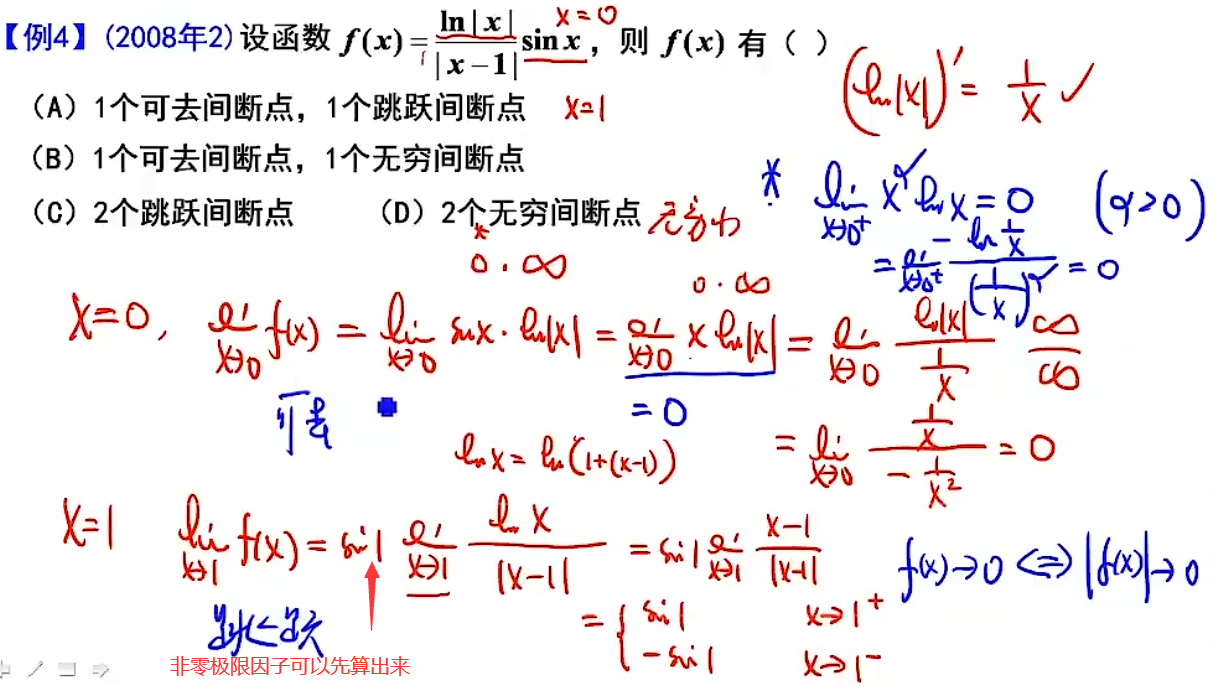 【例4】(2008年2)设函数 f(x)=ln|x|/|x-1| sin x，则 f(x) 有（ ）
x=0
(ln|x|)' = 1/x ✓
（A）1个可去间断点，1个跳跃间断点
x=1
（B）1个可去间断点，1个无穷间断点
（C）2个跳跃间断点 （D）2个无穷间断点
* lim x→0⁺ x^α ln x = 0 (α>0)
= lim x→0⁺ -ln 1/x / (1/x)^α = 0
* 0·∞
0·∞
x=0, lim x→0 f(x) = lim x→0 sin x · ln|x| = lim x→0 x ln|x| = lim x→0 ln|x| / 1/x ∞/∞
可去 = 0
ln x = ln(1+(x-1)) = lim x→0 1/x / -1/x² = 0
x=1 lim x→1 f(x) = sin1 lim x→1 ln x / |x-1| = sin1 lim x→1 x-1 / |x-1|
f(x)→0 <=> |f(x)|→0
跳跃 = { sin1 x→1⁺
-sin1 x→1⁻
非零极限因子可以先算出来